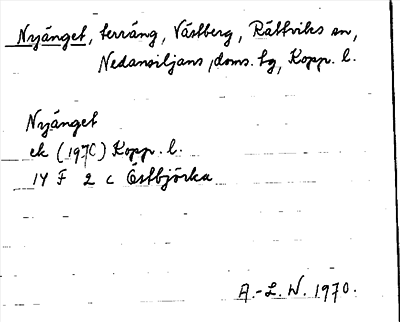 Nyänget, terräng, Västberg, Rättviks sn,
Nedansiljans doms. tg, Kopp. l.
Nyänget
ek (1970) Kopp. l.
14 F 2 c Östbjörka
A.-L. W. 1970.